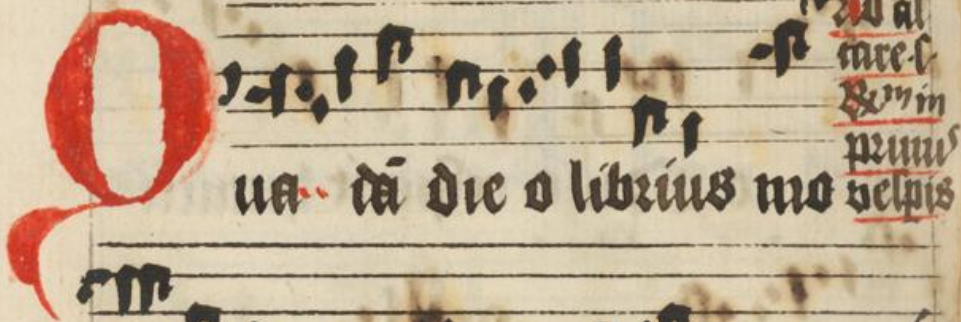 Qua dā die olibrius mo
Ad al
tare. s.
R̄m in
primis
vespis